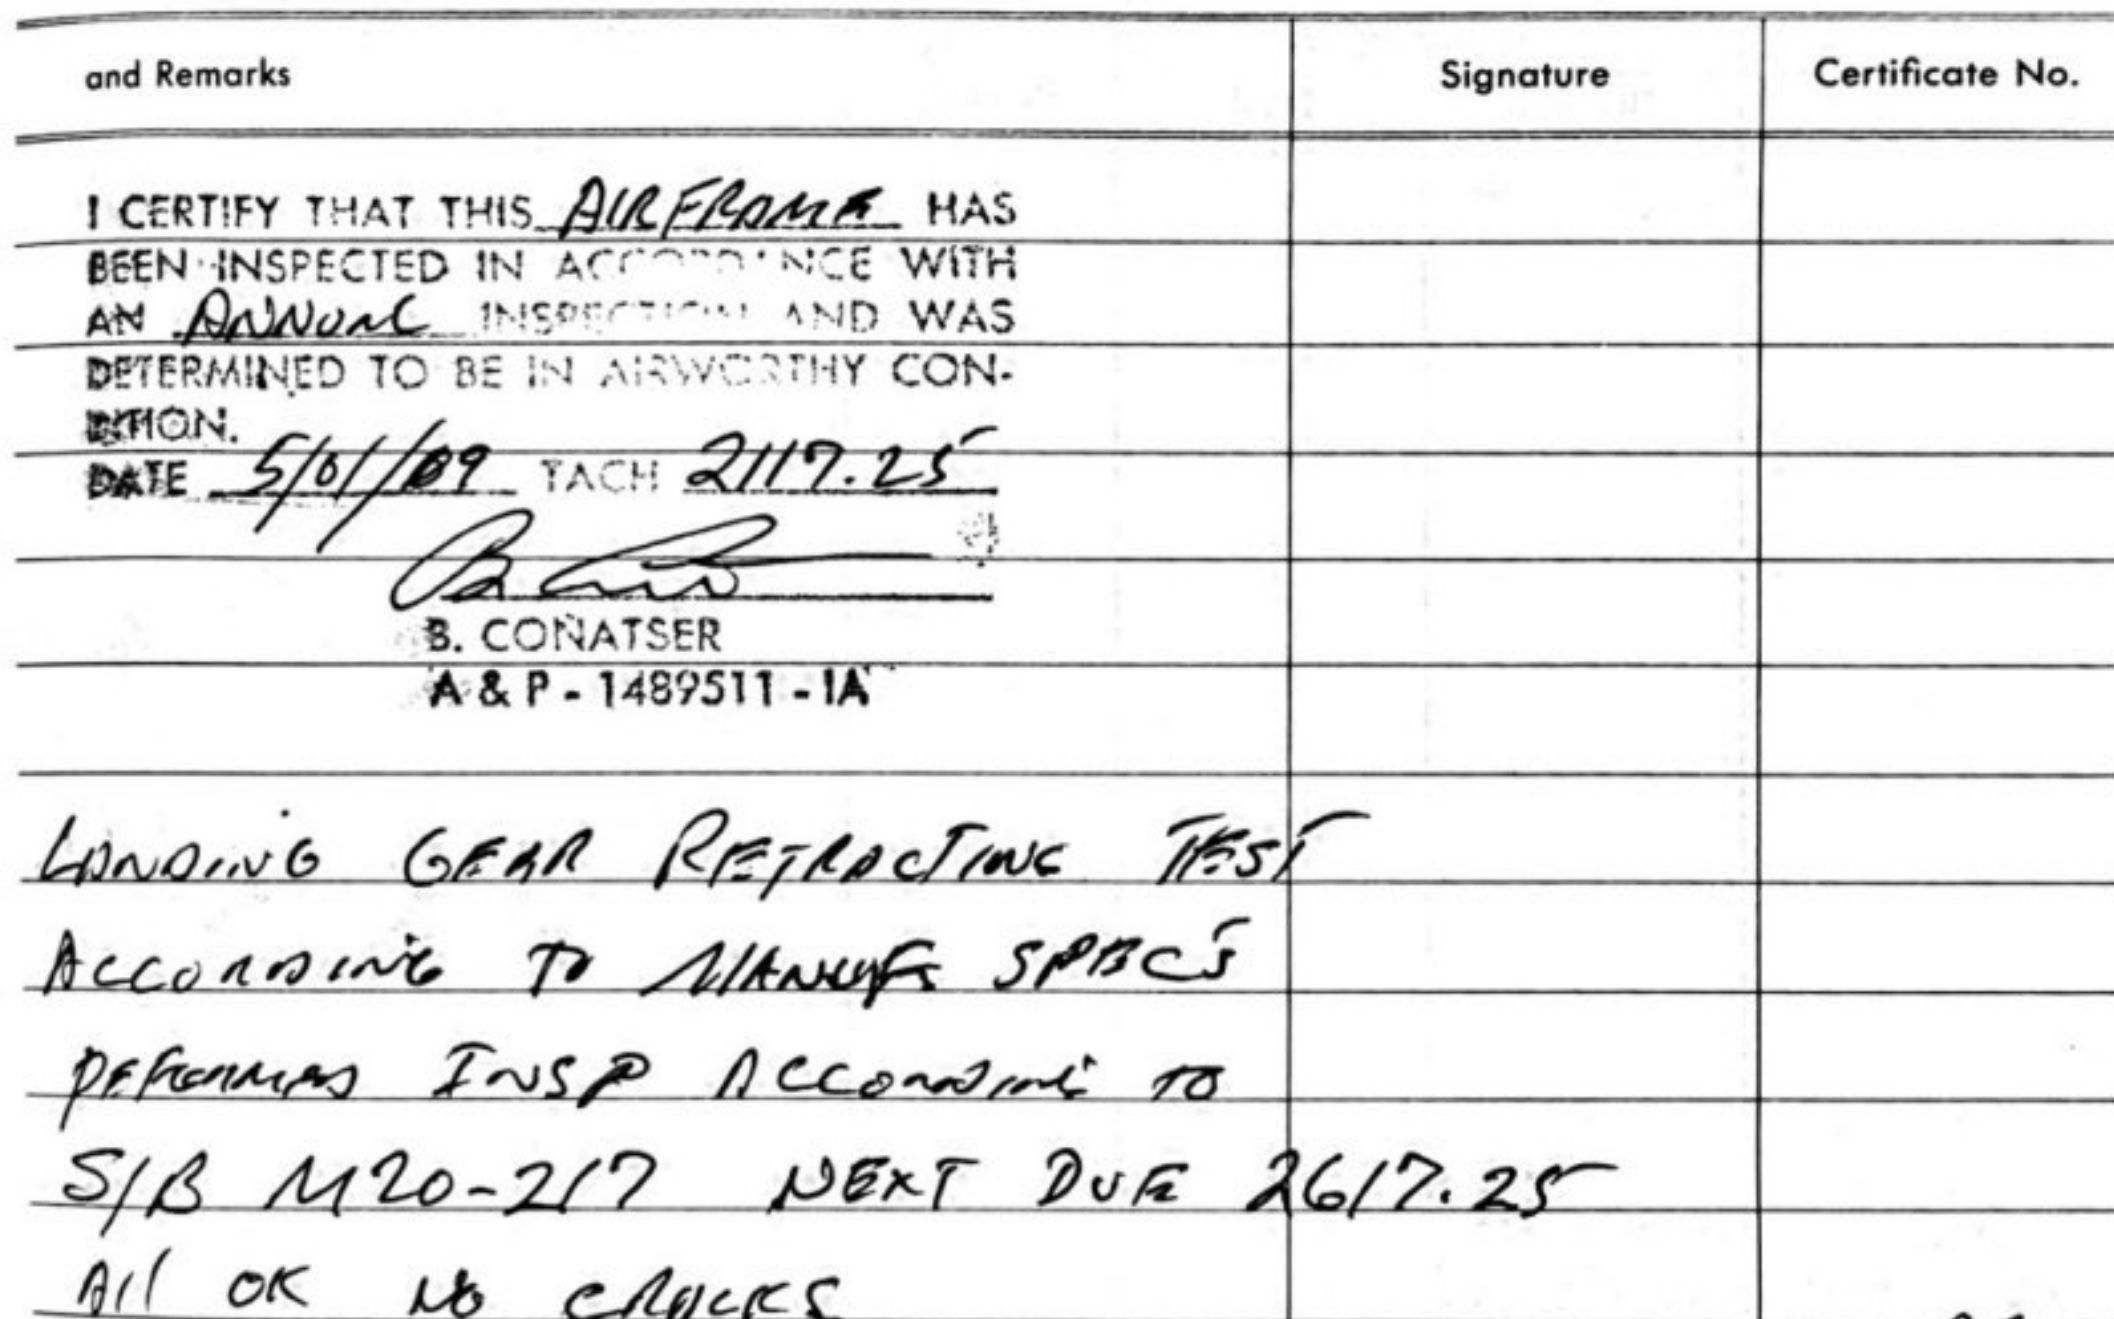 and Remarks
Signature
Certificate No.
I CERTIFY THAT THIS AIRFRAME HAS
BEEN INSPECTED IN ACCORDANCE WITH
AN ANNUAL INSPECTION AND WAS
DETERMINED TO BE IN AIRWORTHY CON-
DITION.
DATE 5/01/89 TACH 2117.25
B. CONATSER
A & P - 1489511 - IA
LANDING GEAR RETRACTING TEST
ACCORDING TO MANUFS SPECS
PERFORMED INSP ACCORDING TO
S/B M20-217 NEXT DUE 2617.25
All OK NO CRACKS